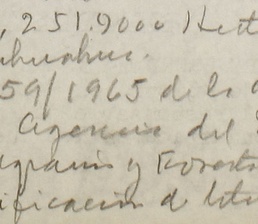 , 251.9000 Hect
ihuahua.
59/1965 de la
Agencia del
agraria y Forestal
ificacion d